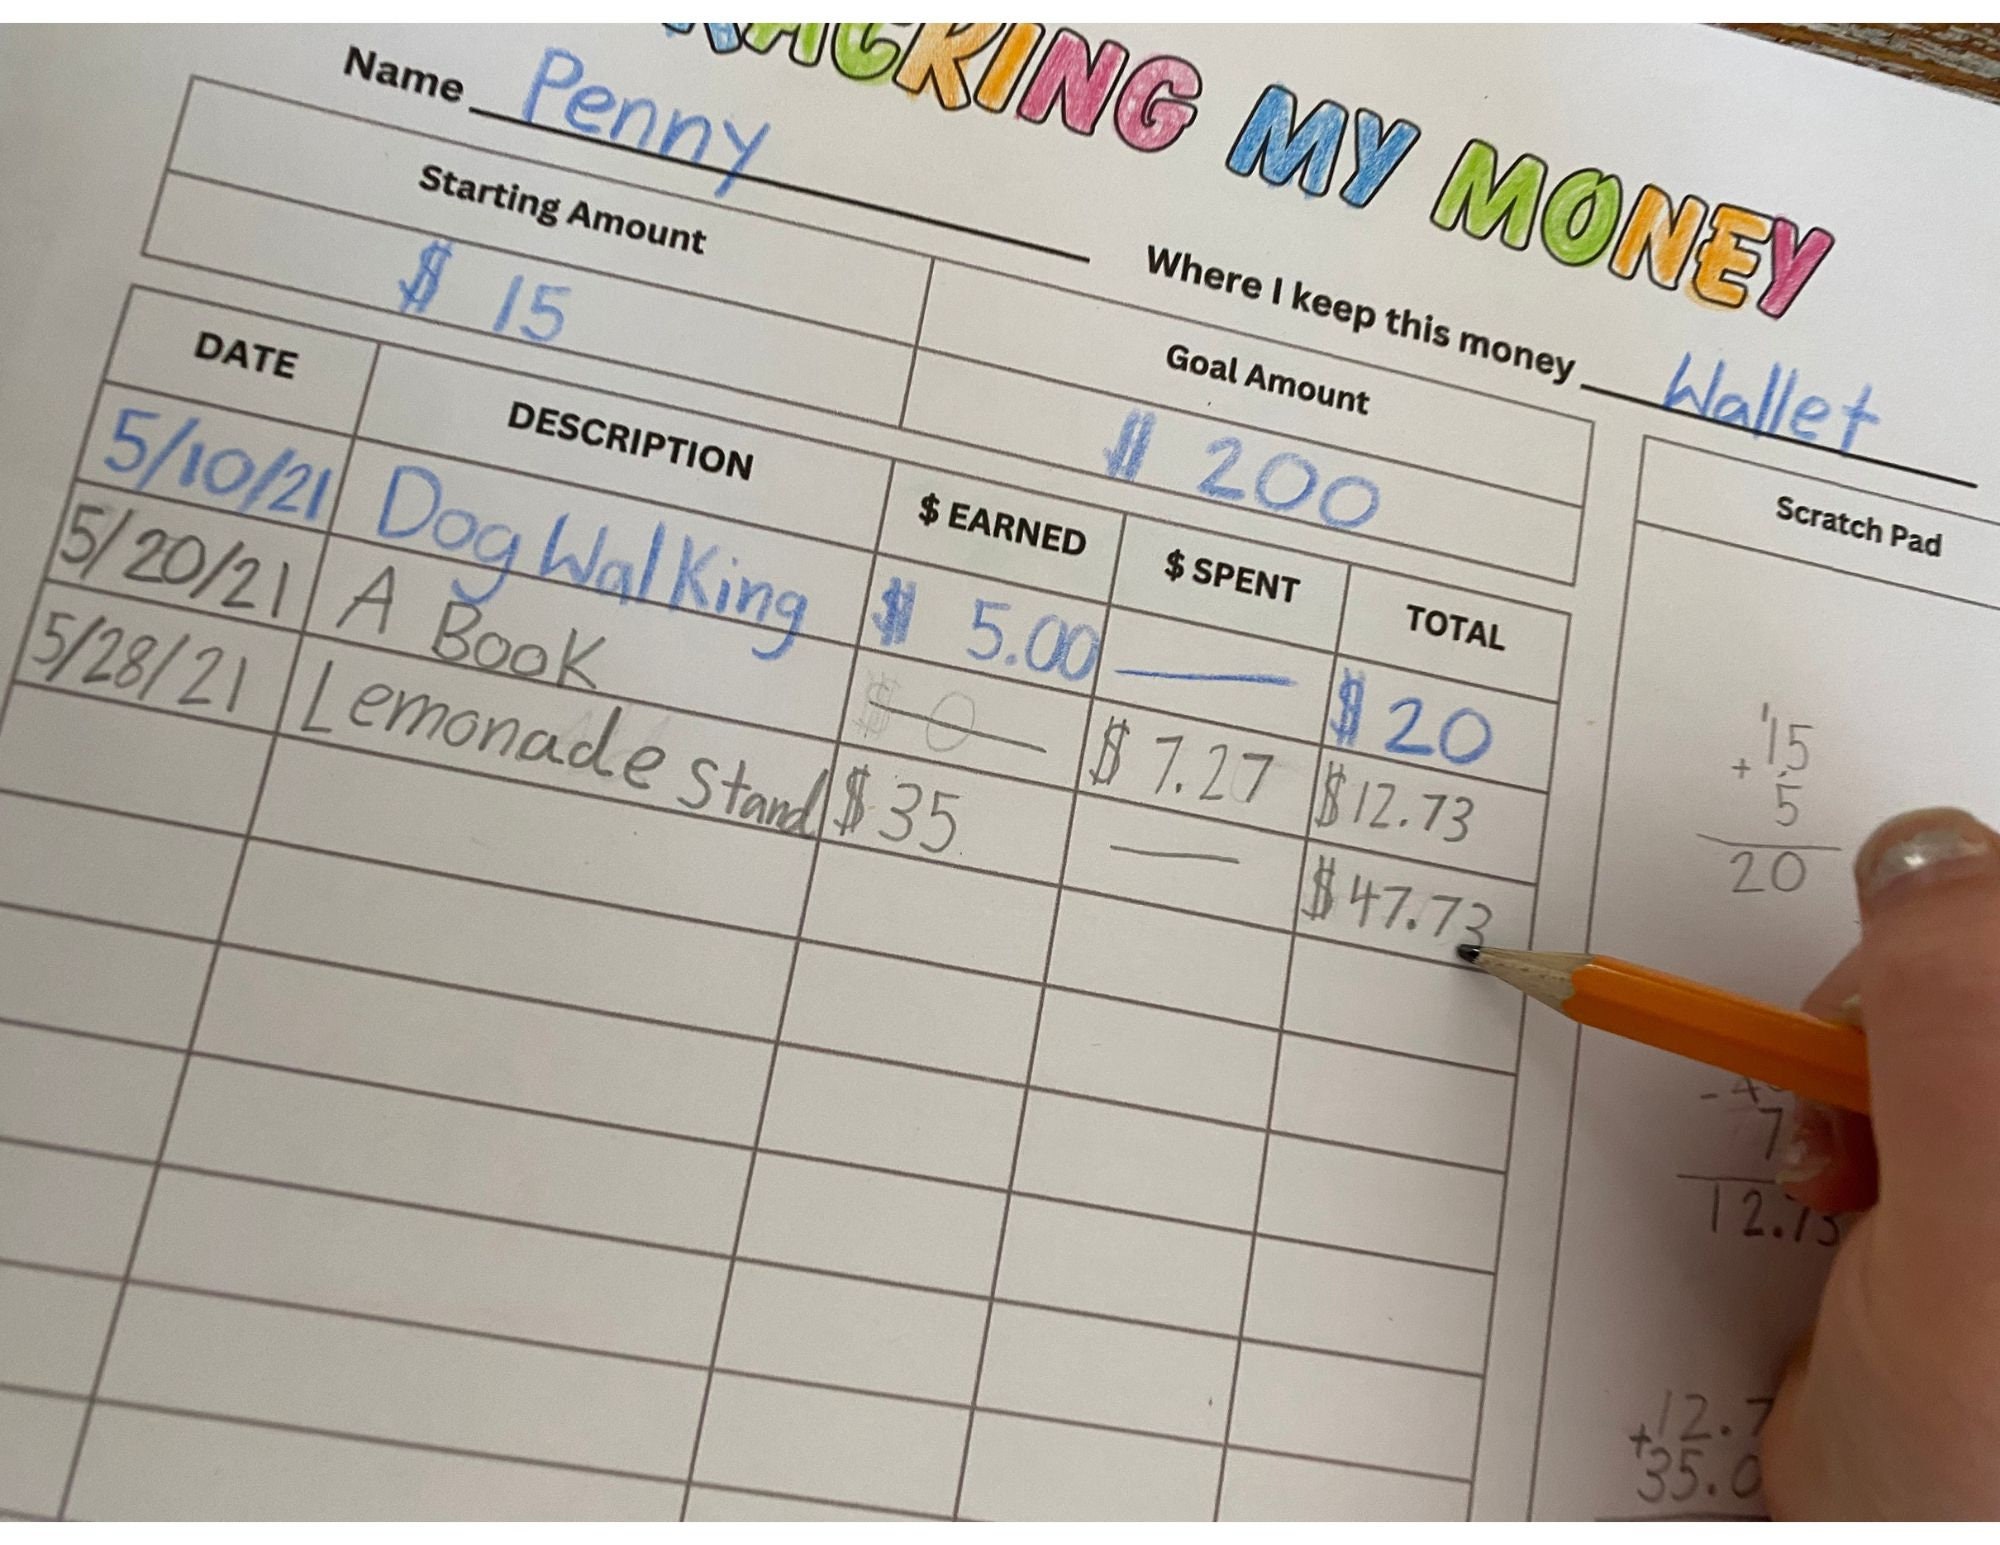 RACKING MY MONEY
Name Penny
Where I keep this money Wallet
Starting Amount
Goal Amount
$ 15
$ 200
DATE DESCRIPTION $ EARNED $ SPENT TOTAL
5/10/21 Dog Walking $ 5.00 — $ 20
5/20/21 A Book $ 0 $ 7.27 $12.73
5/28/21 Lemonade Stand $ 35 — $47.73
Scratch Pad
1
15
+ 5
20
-
7
12.73
12.7
+ 35.0